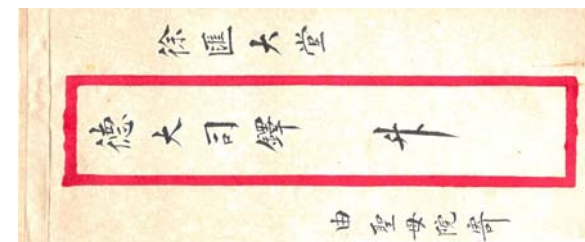 徐匯大堂
德大司鐸 升
由聖母院寄